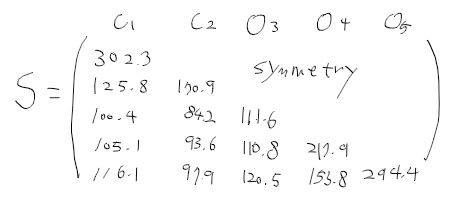 C1 C2 O3 O4 O5
302.3
S = 125.8 170.9 symmetry
100.4 84.2 111.6
105.1 93.6 110.8 217.9
116.1 97.9 120.5 153.8 294.4